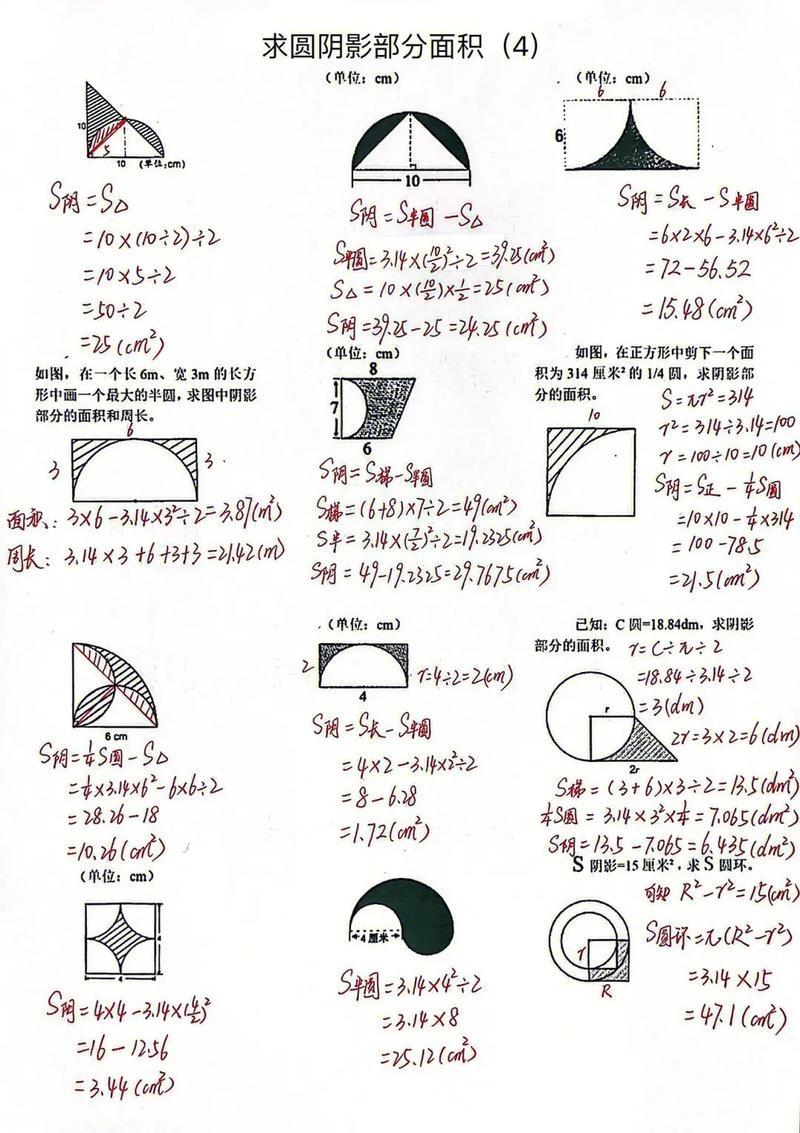 求圆阴影部分面积（4）
10
5
10
(单位:cm)
S阴=S△
=10×(10÷2)÷2
=10×5÷2
=50÷2
=25(cm²)
（单位：cm）
10
S阴=S半圆-S△
S半圆=3.14×(10/2)²÷2=39.25(cm²)
S△=10×(10/2)×1/2=25(cm²)
S阴=39.25-25=24.25(cm²)
（单位：cm）
6 6
6
S阴=S长-S半圆
=6×2×6-3.14×6²÷2
=72-56.52
=15.48(cm²)
如图，在一个长6m、宽3m的长方
形中画一个最大的半圆，求图中阴影
部分的面积和周长。
6
3 3
面积: 3×6-3.14×3²÷2=3.87(m²)
周长: 3.14×3+6+3+3=21.42(m)
（单位：cm）
8
7
6
S阴=S梯-S半圆
S梯=(6+8)×7÷2=49(cm²)
S半=3.14×(7/2)²÷2=19.2325(cm²)
S阴=49-19.2325=29.7675(cm²)
如图，在正方形中剪下一个面
积为314厘米²的1/4圆，求阴影部
分的面积。
S=πr²=314
r²=314÷3.14=100
r=100÷10=10(cm)
10
S阴=S正-1/4S圆
=10×10-1/4×314
=100-78.5
=21.5(cm²)
6 cm
S阴=1/4S圆-S△
=1/4×3.14×6²-6×6÷2
=28.26-18
=10.26(cm²)
（单位：cm）
2
4
r=4÷2=2(cm)
S阴=S长-S半圆
=4×2-3.14×2²÷2
=8-6.28
=1.72(cm²)
已知：C圆=18.84dm，求阴影
部分的面积。
r=C÷π÷2
=18.84÷3.14÷2
=3(dm)
2r=3×2=6(dm)
r
2r
S梯=(3+6)×3÷2=13.5(dm²)
1/4S圆=3.14×3²×1/4=7.065(dm²)
S阴=13.5-7.065=6.435(dm²)
（单位：cm）
4
4
S阴=4×4-3.14×(4/2)²
=16-12.56
=3.44(cm²)
4厘米
S半圆=3.14×4²÷2
=3.14×8
=25.12(cm²)
S阴影=15厘米²，求S圆环。
可知 R²-r²=15(cm²)
r
R
S圆环=π(R²-r²)
=3.14×15
=47.1(cm²)